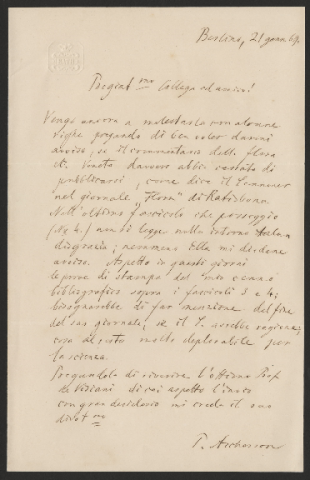 Berlino, 21 genn. 69.
Pregiat.mo Collega ed amico!
Vengo ancora a molestarla con alcune
righe pregando di ben voler darmi
avviso, se il commentario della Flora
di Veneta davvero abbia cessato di
pubblicarsi, come dice il
nel giornale "Flora" di Ratisbona.
Nell'ultimo fascicolo che posseggio
(No 4.) non si legge nulla intorno
disgrazia; nemmeno Ella mi diede ne
avviso. Aspetto in questi giorni
le prove di stampa del mio cenno
bibliografico sopra i fascicoli 3 e 4;
bisognarebbe di far menzione del fine
del suo giornale, se il avrebbe ragione,
cosa del resto molto deplorabile per
la scienza.
Pregandola di riverire l'ottimo Prof.
de Visiani di cui aspetto l'
con gran desiderio mi creda il suo
divot.mo
P. Ascherson